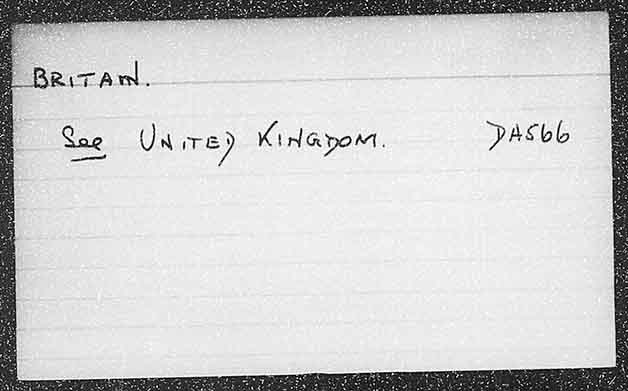 BRITAIN.
See UNITED KINGDOM. DA566